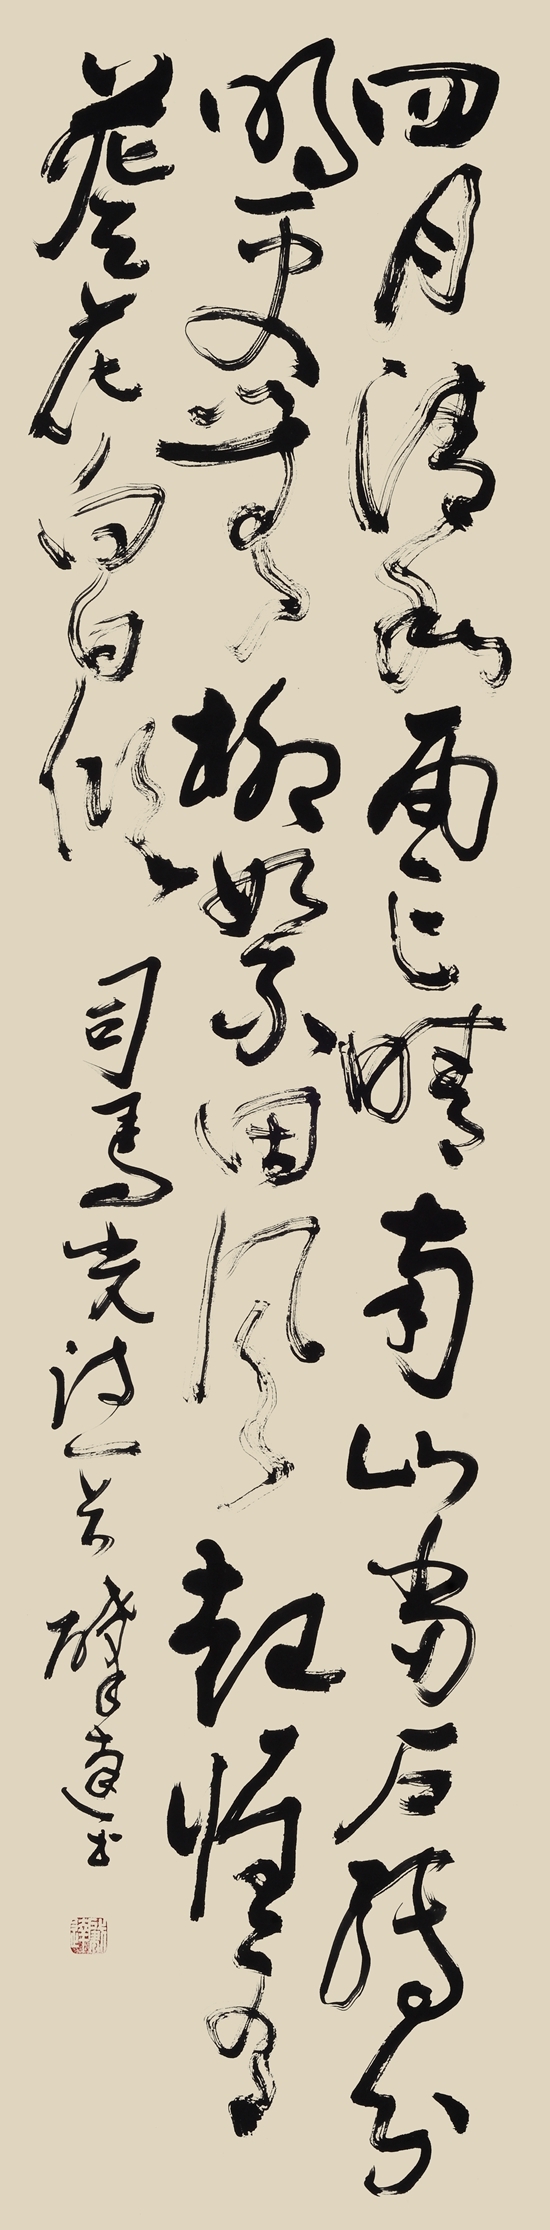 四月清和雨乍晴南山當戶轉分
明更無柳絮因風起惟有
葵花向日傾 司馬光詩一首